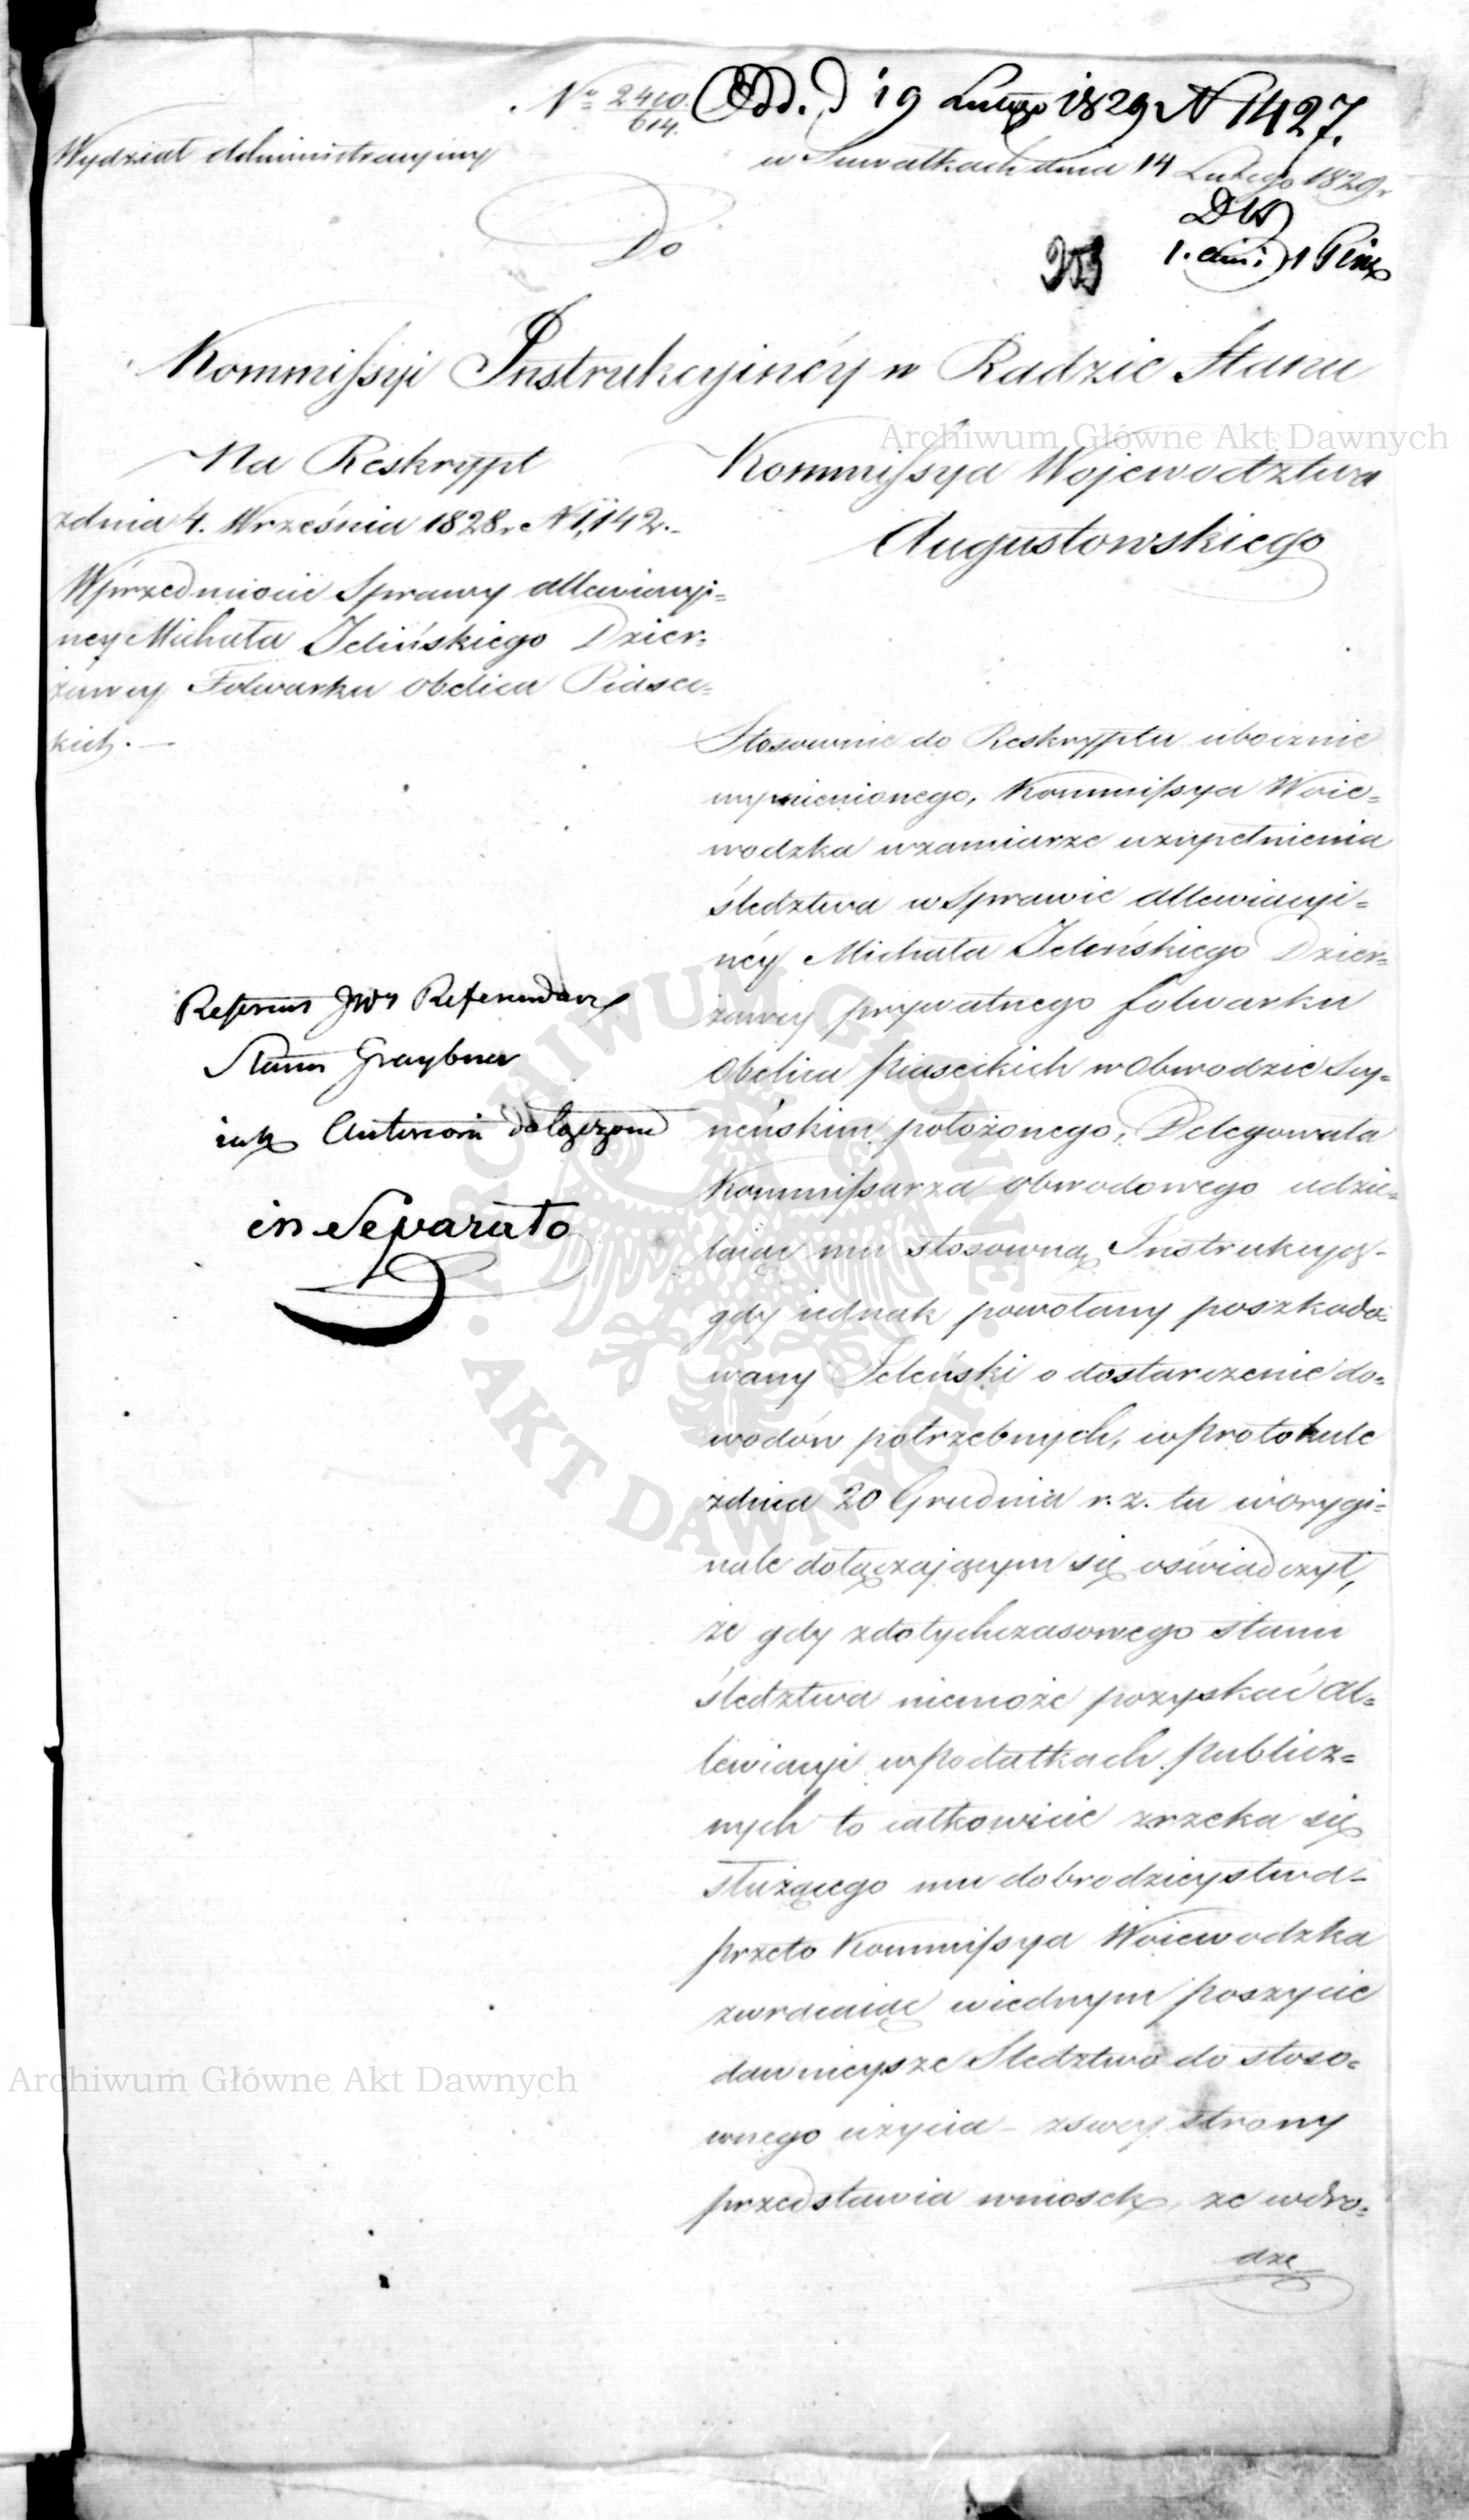 Nro 2410/614. Odd. d 19 Lutego 1829 N 1427.
Wydział Administracyiny
w Suwałkach dnia 14 Lutego 1829 r
Do
253
Kommissyi Instrukcyinéy w Radzie Stanu
Na Reskrypt
z dnia 4. Września 1828 r. N 1,142.
W przedmiocie Sprawy allewiacyi=
ney Michała Jeleńskiego Dzier=
żawcy Folwarku Obelica Piasec=
kich.
Kommissya Województwa
Augustowskiego
Archiwum Główne Akt Dawnych
Stosownie do Reskryptu ubocznie
wymienionego, Kommissya Woie=
wodzka w zamiarze uzupełnienia
śledztwa w Sprawie allewiacyi=
néy Michała Jeleńskiego Dzier=
żawcy prywatnego folwarku
Obelica Piaseckich w Obwodzie Sey=
neńskim położonego, Delegowała
Kommissarza obwodowego udzie=
laiąc mu stosowną Instrukcyą-
gdy iednak powołany poszkodo=
wany Jeleński o dostarczenie do=
wodów potrzebnych, w protokule
z dnia 20 Grudnia r. z. tu w orygi=
nale dołączającym się oświadczył,
że gdy z dotychczasowego stanu
śledztwa niemoże pozyskać al=
lewiacyi w podatkach publicz=
nych to całkowicie zrzeka się
służącego mu dobrodzieystwa-
przeto Kommissya Woiewodzka
zwracaiąc w iednym poszycie
dawnieysze Śledztwo do stoso=
wnego użycia - z swey strony
przedstawia wniosek, że w dro=
dze
Referent JWy Referendarz
Stanu Graybner
cum Anterioris dołączone
in Separato
ARCHIWUM GŁÓWNE AKT DAWNYCH
Archiwum Główne Akt Dawnych